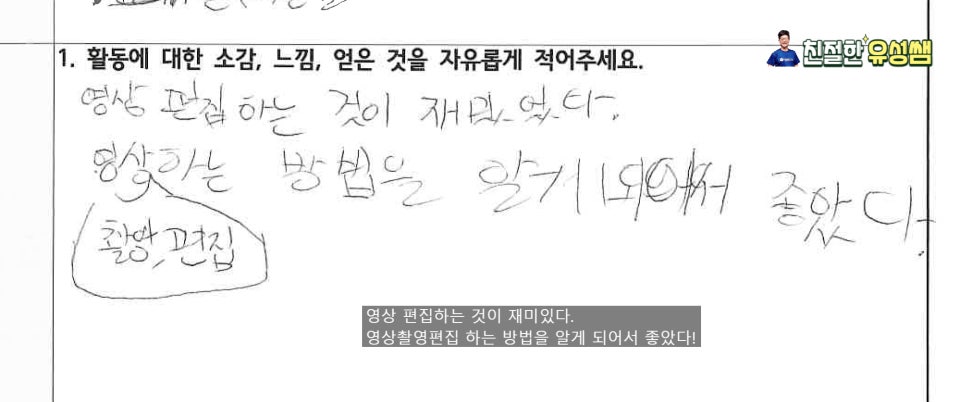 친절한 유성쌤
1. 활동에 대한 소감, 느낌, 얻은 것을 자유롭게 적어주세요.
영상 편집 하는 것이 재미있었다.
영상하는 방법을 알게 되어서 좋았다.
촬영, 편집
영상 편집하는 것이 재미있다.
영상촬영편집 하는 방법을 알게 되어서 좋았다!